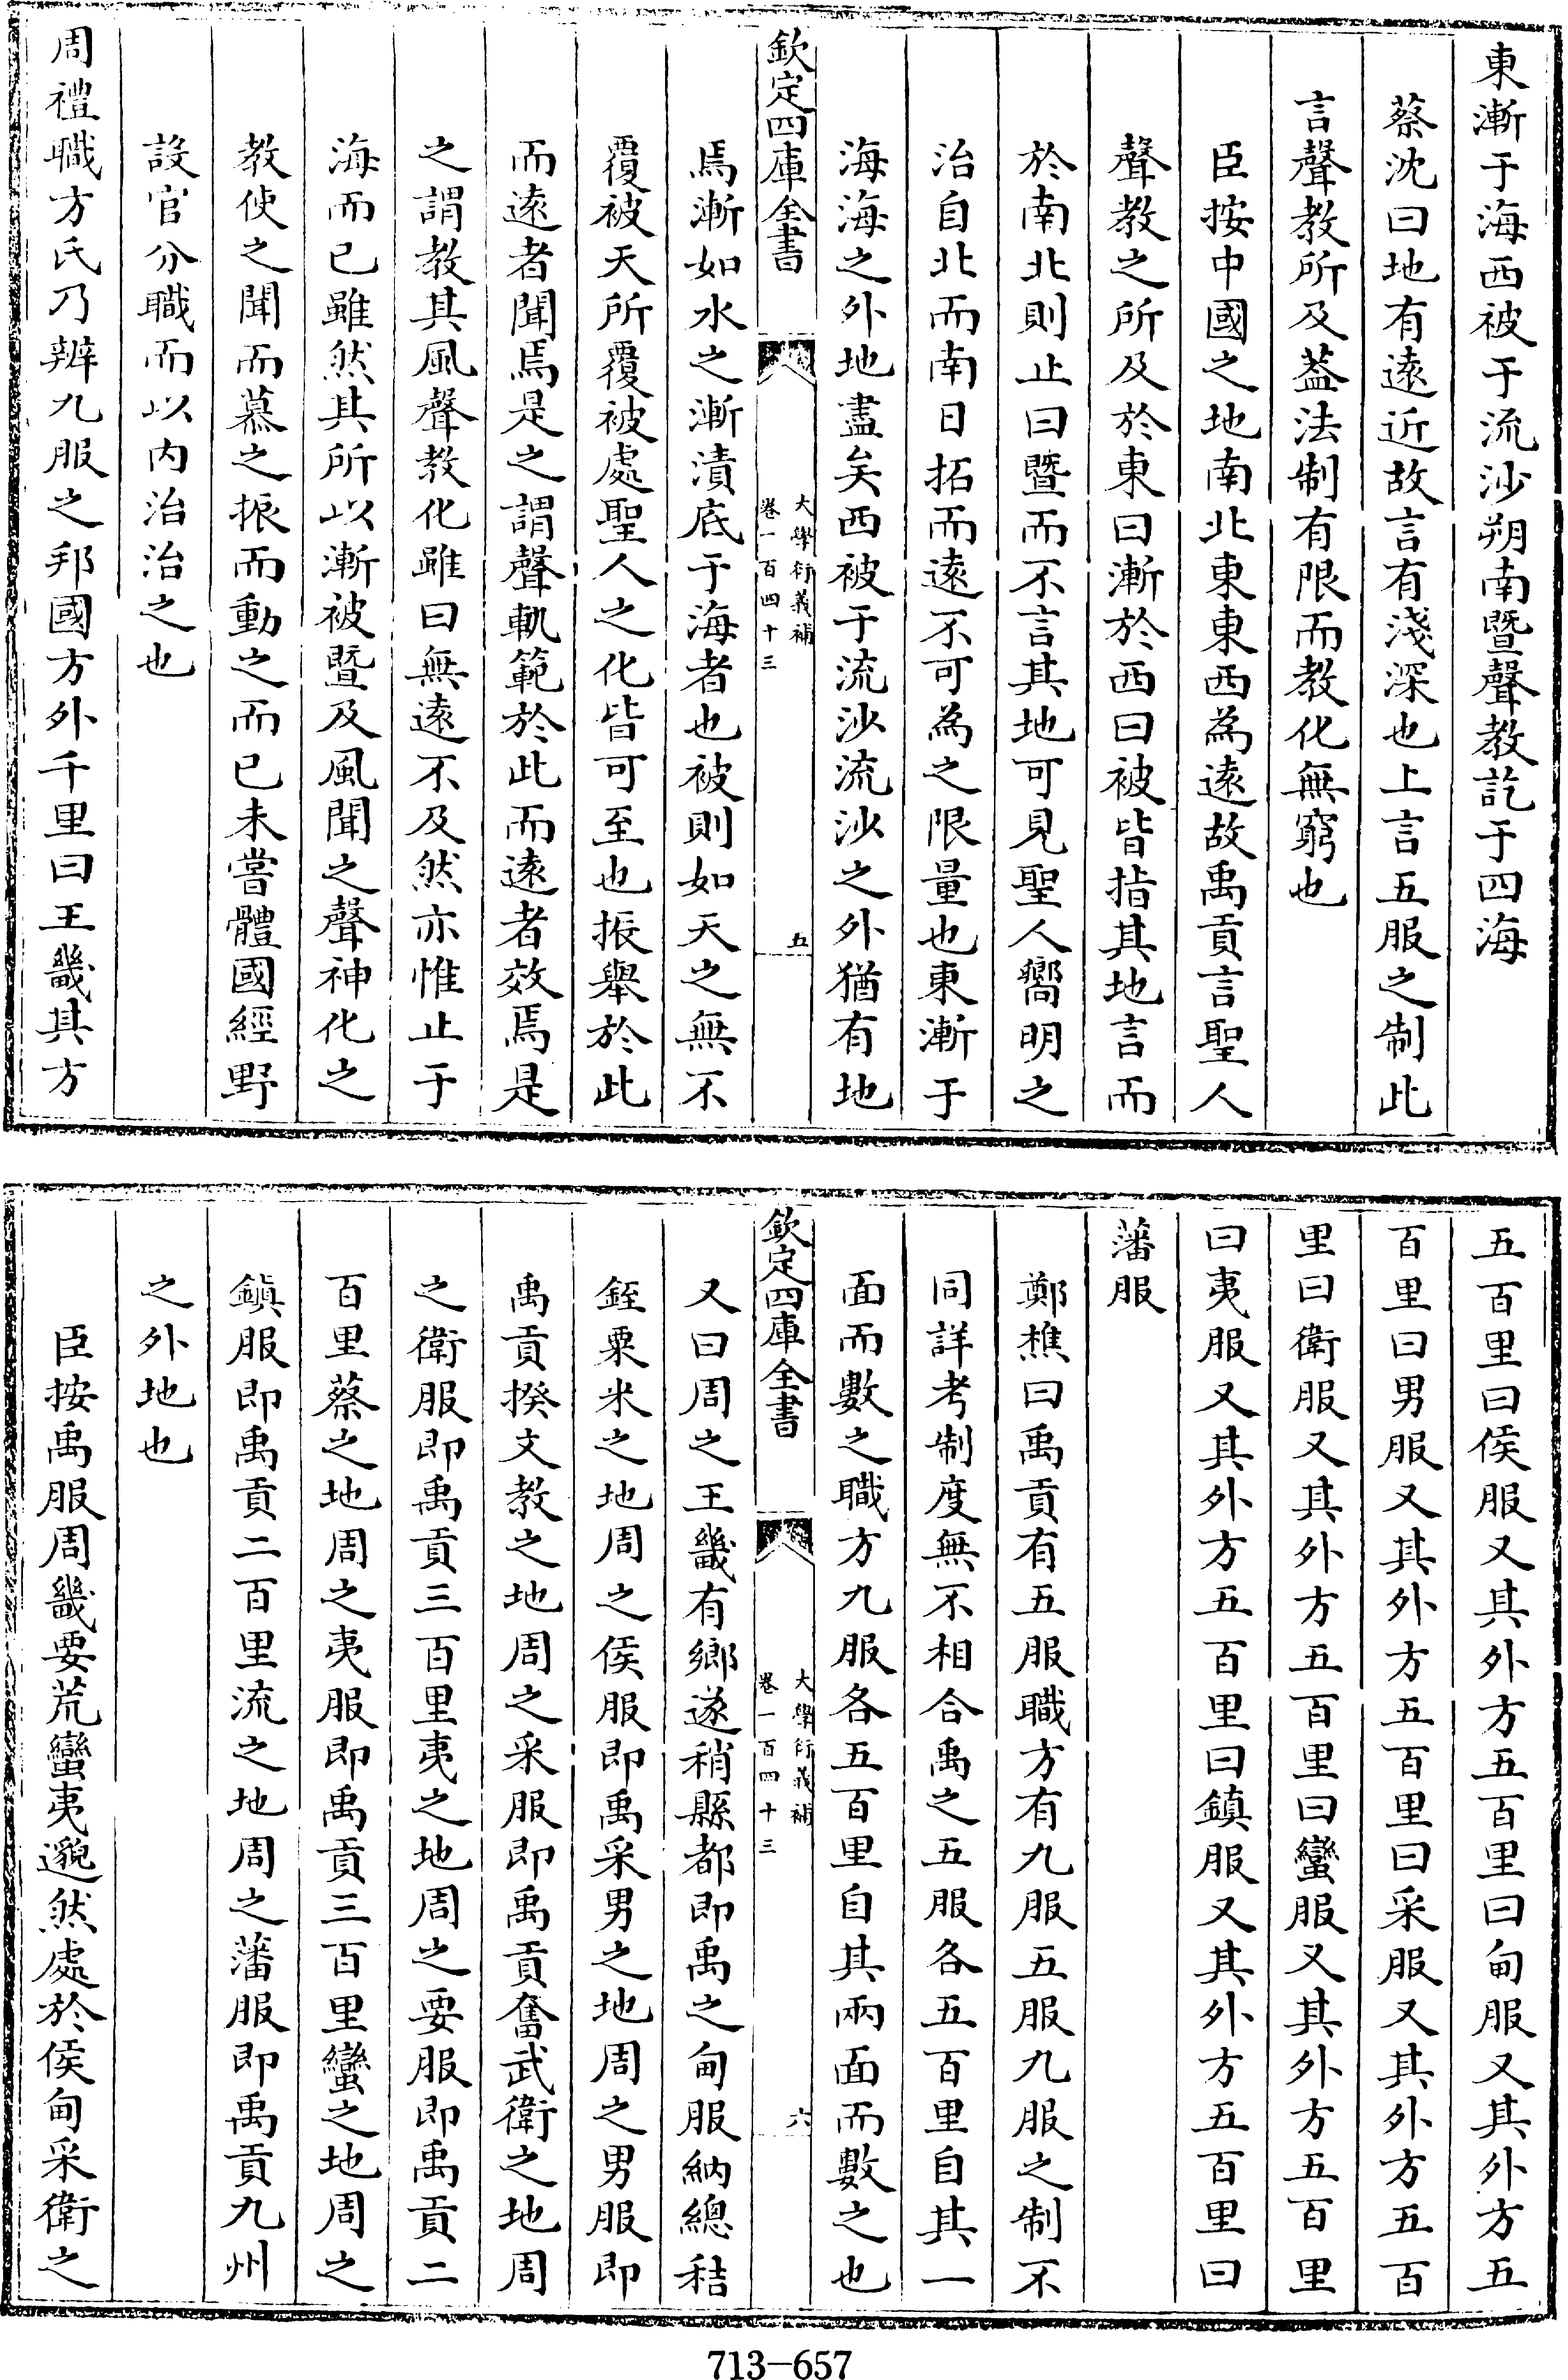 東漸于海西被于流沙朔南暨聲教訖于四海
蔡沈曰地有遠近故言有淺深也上言五服之制此
言聲教所及蓋法制有限而教化無窮也
臣按中國之地南北東東西為遠故禹貢言聖人
聲教之所及於東曰漸於西曰被皆指其地言而
於南北則止曰暨而不言其地可見聖人嚮明之
治自北而南日拓而遠不可為之限量也東漸于
海海之外地盡矣西被于流沙流沙之外猶有地
欽定四庫全書
大學衍義補
卷一百四十三
五
焉漸如水之漸漬底于海者也被則如天之無不
覆被天所覆被處聖人之化皆可至也振舉於此
而遠者聞焉是之謂聲軌範於此而遠者效焉是
之謂教其風聲教化雖曰無遠不及然亦惟止于
海而已雖然其所以漸被暨及風聞之聲神化之
教使之聞而慕之振而動之而已未嘗體國經野
設官分職而以內治治之也
周禮職方氏乃辨九服之邦國方外千里曰王畿其方
五百里曰侯服又其外方五百里曰甸服又其外方五
百里曰男服又其外方五百里曰采服又其外方五百
里曰衛服又其外方五百里曰蠻服又其外方五百里
曰夷服又其外方五百里曰鎮服又其外方五百里曰
藩服
鄭樵曰禹貢有五服職方有九服五服九服之制不
同詳考制度無不相合禹之五服各五百里自其一
面而數之職方九服各五百里自其兩面而數之也
欽定四庫全書
大學衍義補
卷一百四十三
六
又曰周之王畿有鄉遂稍縣都即禹之甸服納總秸
銍粟米之地周之侯服即禹采男之地周之男服即
禹貢揆文教之地周之采服即禹貢奮武衛之地周
之衛服即禹貢三百里夷之地周之要服即禹貢二
百里蔡之地周之夷服即禹貢三百里蠻之地周之
鎮服即禹貢二百里流之地周之藩服即禹貢九州
之外地也
臣按禹服周畿要荒蠻夷邈然處於侯甸采衛之
713-657